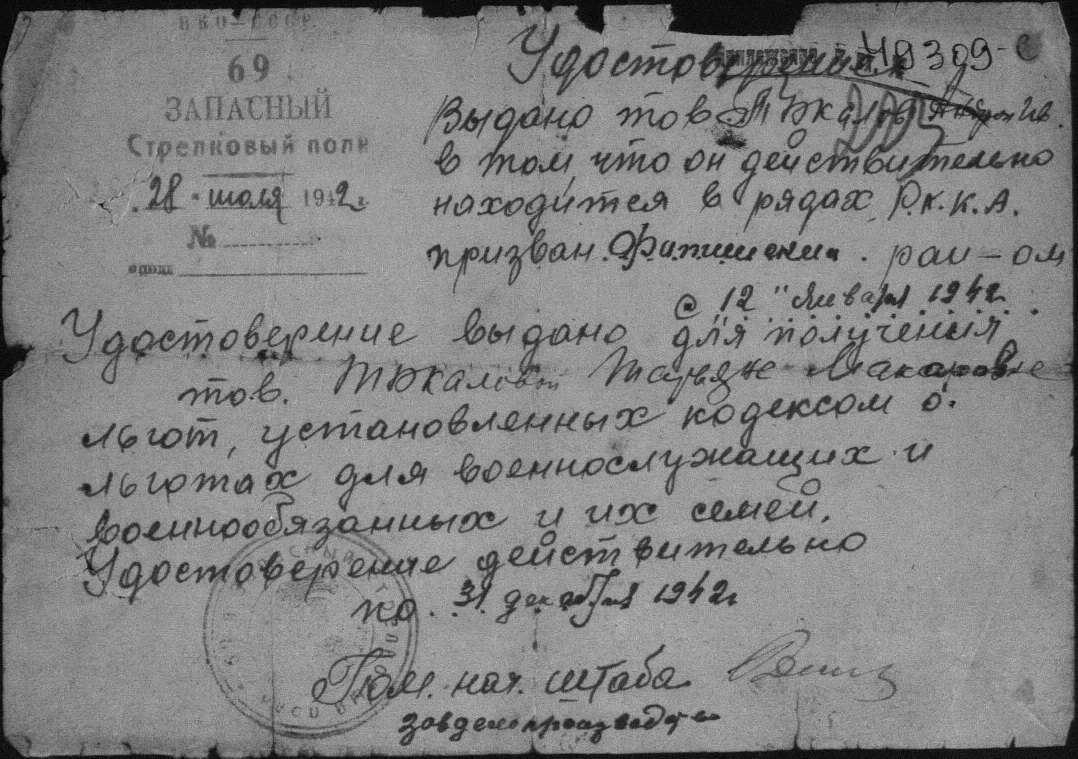 НКО-СССР
69
ЗАПАСНЫЙ
Стрелковый полк
28 июля 1942 г.
№
Удостоверение
49309-с
Выдано тов.
в том, что он действительно
находится в рядах Р.К.К.А.
призван рай-ом
с 12 " января 1942г.
Удостоверение выдано для получения
тов. Макаровне
льгот, установленных кодексом о
льготах для военнослужащих и
военнообязанных и их семей.
Удостоверение действительно
по 31 декабря 1942г
Пом. нач. штаба
завделопроизводств